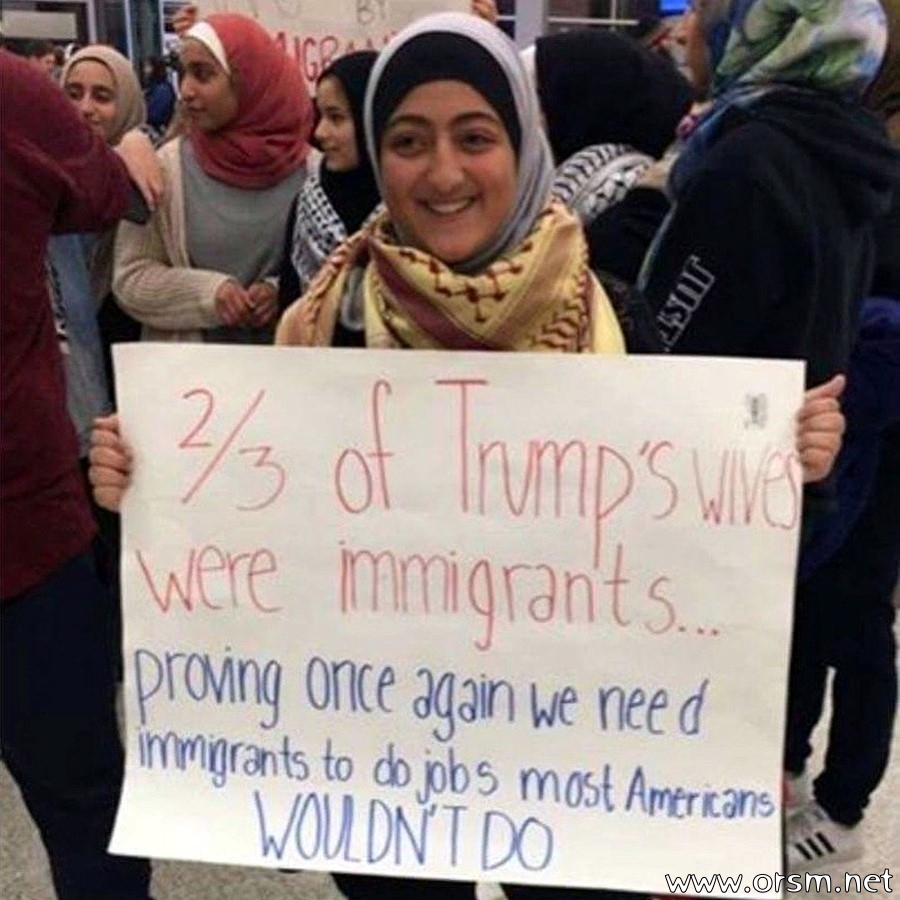 BY
2/3 of Trump's wives
were immigrants...
proving once again we need
immigrants to do jobs most Americans
WOULDN'T DO
www.orsm.net